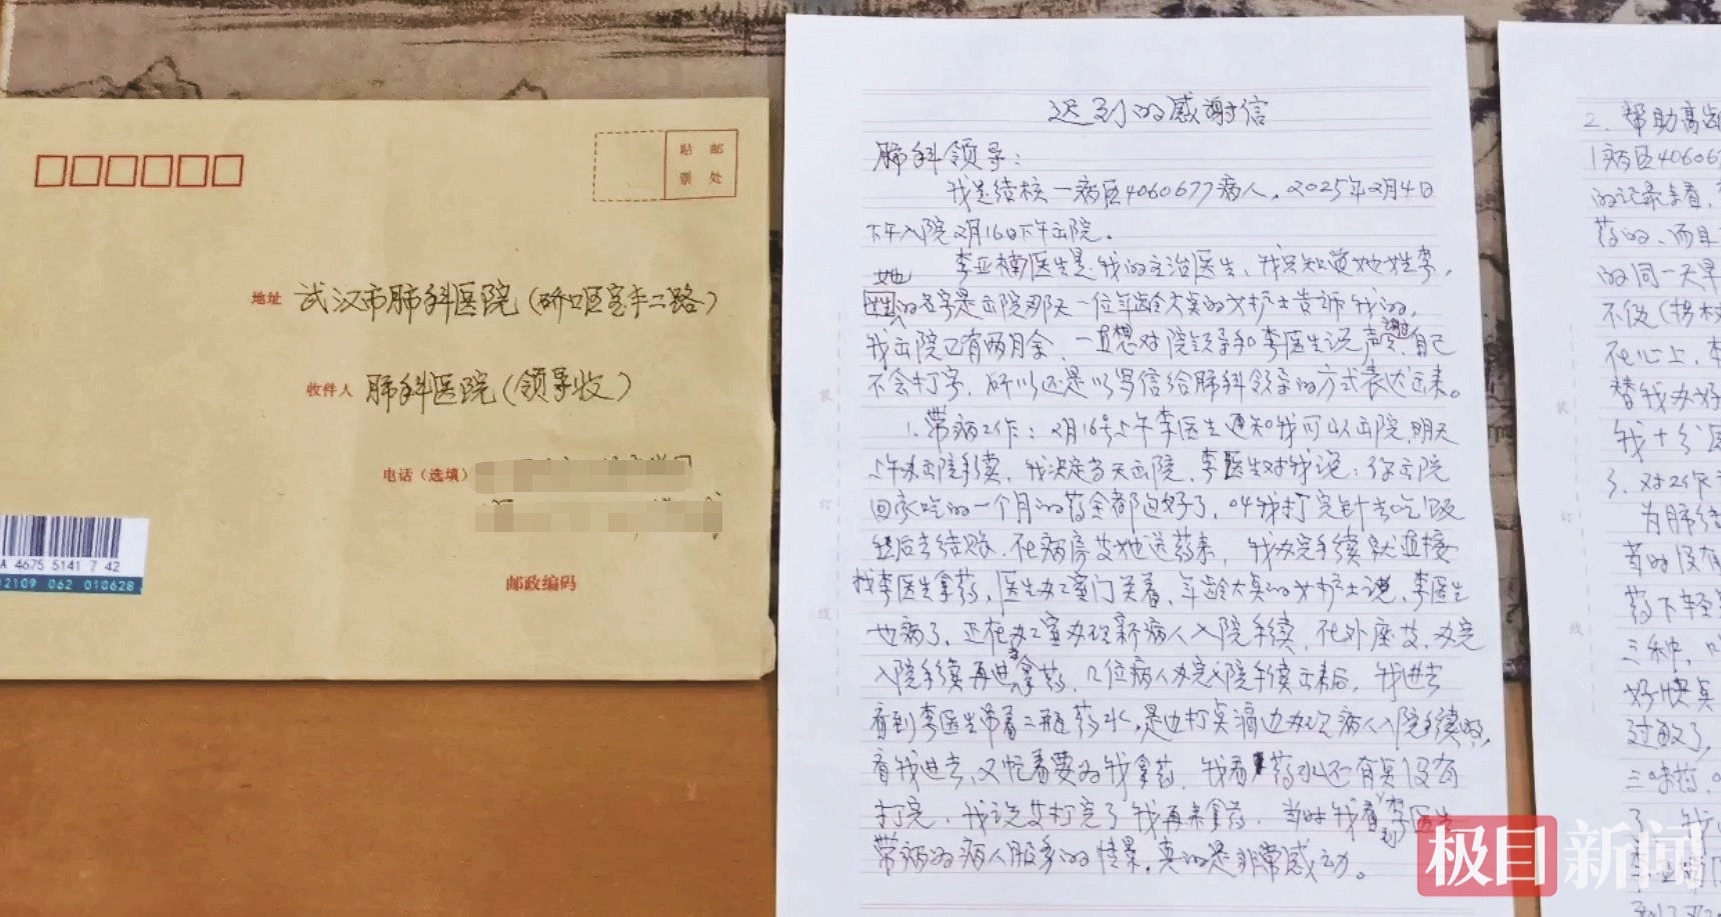 贴 邮
票 处
地址 武汉市肺科医院(硚口区宝丰二路)
收件人 肺科医院(领导收)
电话(选填)
邮政编码
A 4675 5141 7 42
12109 062 010628
迟到的感谢信
肺科领导:
我是结核一病区4060677病人,2025年2月4日
下午入院2月16日下午出院。
李亚楠医生是我的主治医生,我只知道她姓李,
她的名字是出院那天一位年龄大点的女护士告诉我的,
我出院已有两月余,一直想对院领导和李医生说声谢谢,自己
不会打字,所以还是以写信给肺科领导的方式表达出来。
1.带病工作:2月16号上午李医生通知我可以出院,明天
上午办出院手续,我决定当天出院,李医生对我说:你出院
回家吃的一个月的药全都包好了,叫我打完针去吃饭
然后去结账,在病房等她送药来,我办完手续就直接
找李医生拿药,医生办公室门关着,年龄大点的女护士说,李医生
也病了,还在办公室办理新病人入院手续,在外座等,办完
入院手续再进去拿药,几位病人办完入院手续出来后,我进去
看到李医生带着二瓶药水,是边打点滴边办理病人入院手续的,
看我进去,又忙着要为我拿药,我看药水还有点没有
打完,我说等打完了我再来拿药,当时我看到李医生
带病为病人服务的情景,真的是非常感动。
2.帮助高龄
1病区406067
的记录来看,
药的,而且
的同一天早
不便(
在心上,李
替我办好
我十分感
3.对工作
为肺结
当时没有
药下轻
三种,
好快
过敏了,
三味药,
了,我
极目新闻